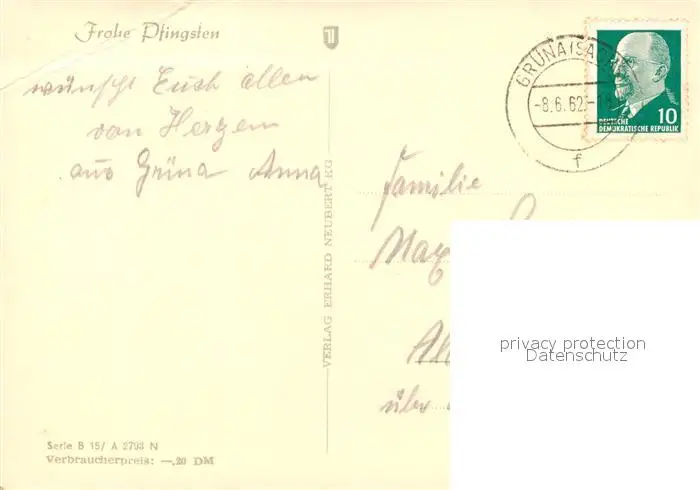 Frohe Pfingsten
wünscht Euch allen
von Herzen
aus Grüna Anna
VERLAG ERHARD NEUBERT KG
Serie B 15/ A 2793 N
Verbraucherpreis: —,20 DM
GRÜNA (SA
-8.6.62.-1
f
10
DEUTSCHE
DEMOKRATISCHE REPUBLIK
Familie
Max
über
privacy protection
Datenschutz